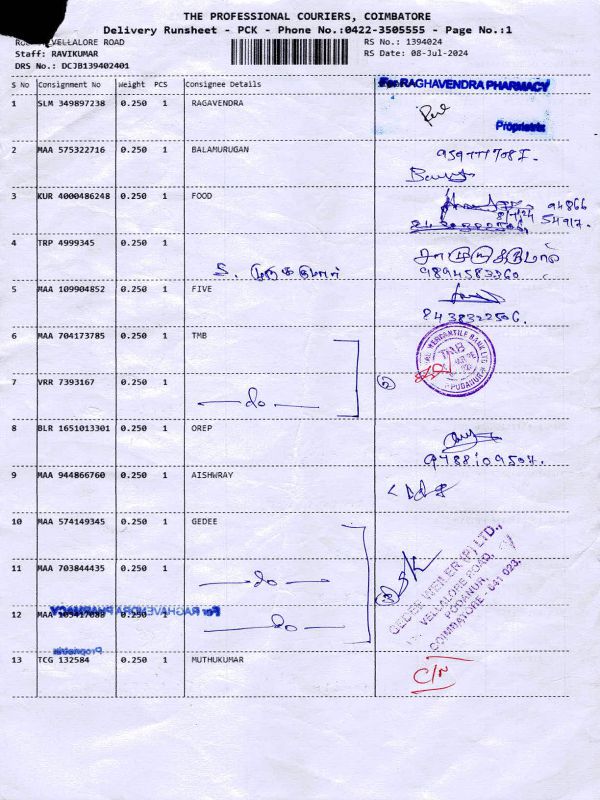 THE PROFESSIONAL COURIERS, COIMBATORE
Delivery Runsheet - PCK - Phone No.:0422-3505555 - Page No.:1
VELLALORE ROAD RS No.: 1394024
Staff: RAVIKUMAR RS Date: 08-Jul-2024
DRS No.: DCJB139402401
S No Consignment No Weight PCS Consignee Details For RAGHAVENDRA PHARMACY
1 SLM 349897238 0.250 1 RAGAVENDRA
Proprietrix
2 MAA 575322716 0.250 1 BALAMURUGAN
3 KUR 4000486248 0.250 1 FOOD 94866
8/7/24 54917.
4 TRP 4999345 0.250 1
9894583260
5 MAA 109904852 0.250 1 FIVE
8438322506.
6 MAA 704173785 0.250 1 TMB
TMB
PODANUR
7 VRR 7393167 0.250 1
do
8 BLR 1651013301 0.250 1 OREP
9788109507.
9 MAA 944866760 0.250 1 AISHWRAY
10 MAA 574149345 0.250 1 GEDEE
11 MAA 703844435 0.250 1
do
GEDEE WEILER (P) LTD.,
VELLALORE ROAD,
PODANUR,
COIMBATORE - 641 023.
12 MAA 0.250 1 For RAGHAVENDRA PHARMACY
do
Proprietrix
13 TCG 132584 0.250 1 MUTHUKUMAR
C/N